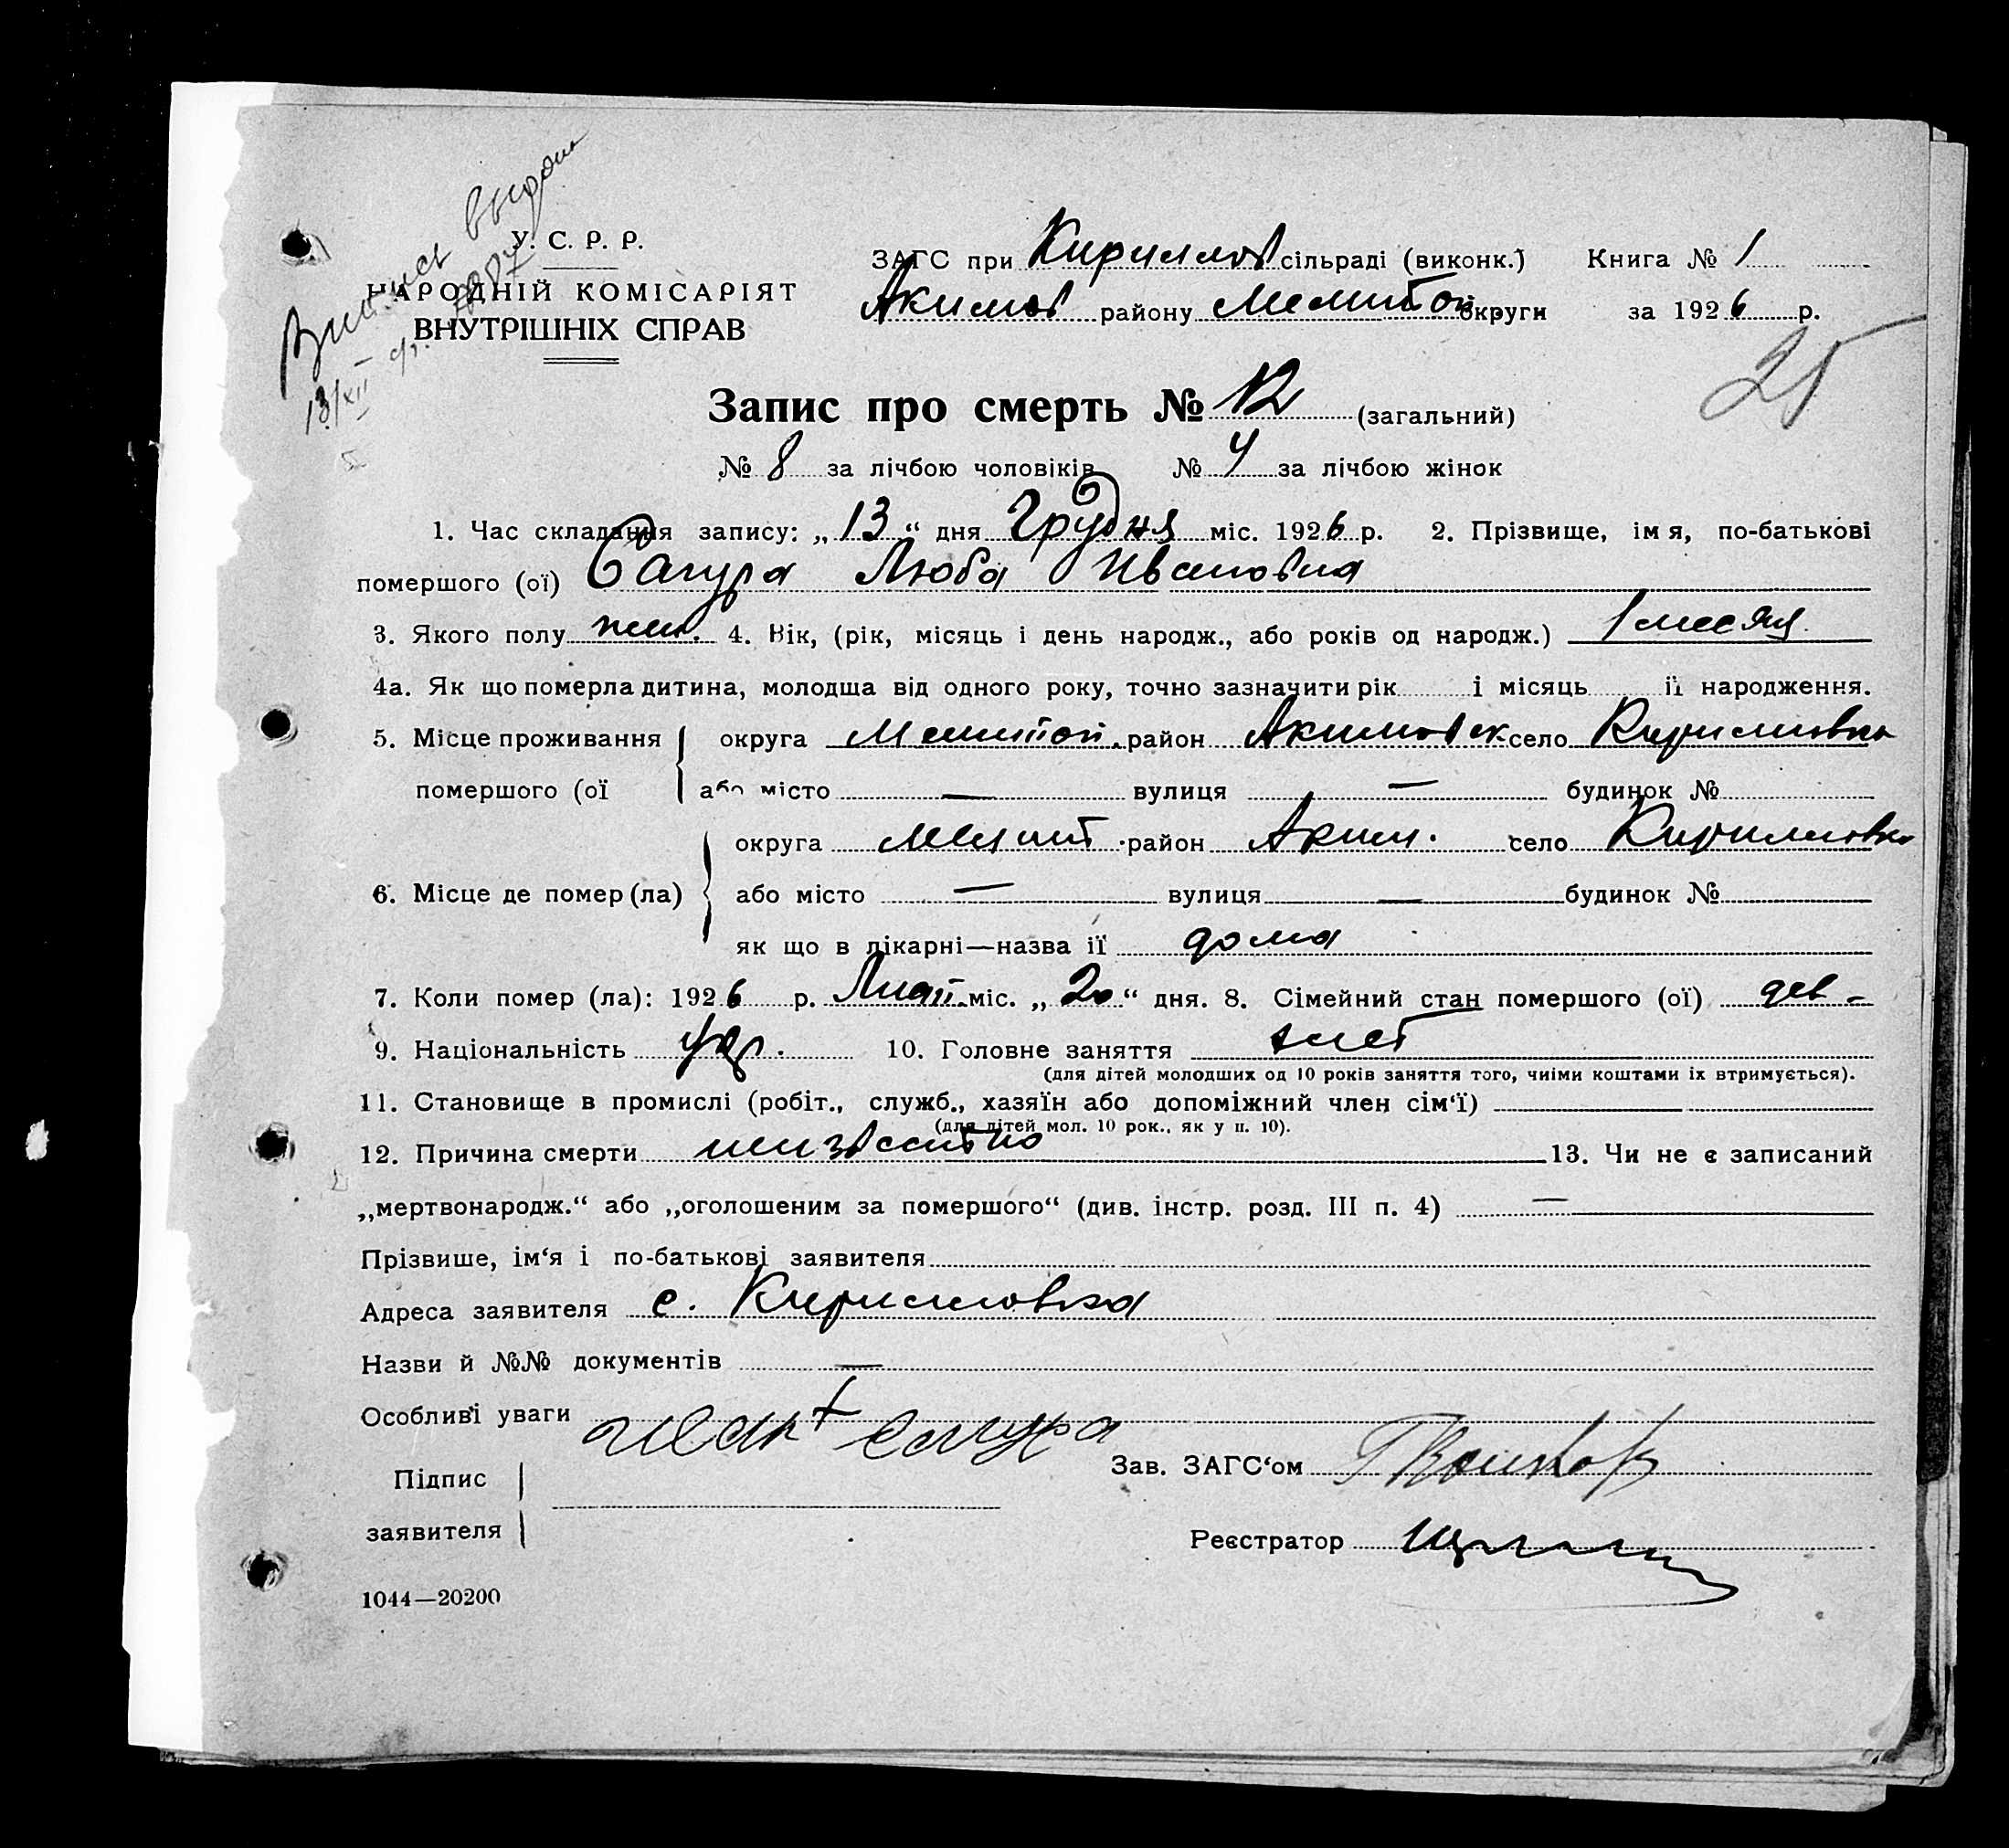 Випись выдана
13/XII
У. С. Р. Р.
НАРОДНІЙ КОМІСАРІЯТ
ВНУТРІШНІХ СПРАВ
ЗАГС при Кириллов сільраді (виконк.) Книга № 1
Акимов району Мелитоп округи за 1926 р.
25
Запис про смерть № 12 (загальний)
№ 8 за лічбою чоловіків № 4 за лічбою жінок
1. Час складання запису: „13“ дня Грудня міс. 1926 р. 2. Прізвище, ім я, по-батькові
помершого (ої) Сагура Люба Ивановна
3. Якого полу жен. 4. Вік, (рік, місяць і день народж., або років од народж.) 1 месяц
4а. Як що померла дитина, молодща від одного року, точно зазначити рік і місяць її народження.
5. Місце проживання округа Мелитоп. район Акимовск село Кирилловка
помершого (ої або місто — вулиця — будинок №
округа Мелит. район Аким. село Кирилловка
6. Місце де помер (ла) або місто — вулиця — будинок №
як що в лікарні—назва її дома
7. Коли помер (ла): 1926 р. Лист. міс. „20“ дня. 8. Сімейний стан помершого (ої) дев-
9. Національність укр. 10. Головне заняття
(для дітей молодших од 10 років заняття того, чиїми коштами їх втримується).
11. Становище в промислі (робіт., служб., хазяїн або допоміжний член сім‘ї)
(для дітей мол. 10 рок., як у п. 10).
12. Причина смерти неизвестно 13. Чи не є записаний
„мертвонародж.“ або „оголошеним за помершого“ (див. інстр. розд. III п. 4) —
Прізвише, ім‘я і по-батькові заявителя
Адреса заявителя с. Кирилловка
Назви й №№ документів —
Особливі уваги
Иван Сагура
Підпис
заявителя
Зав. ЗАГС‘ом
Реєстратор
1044—20200